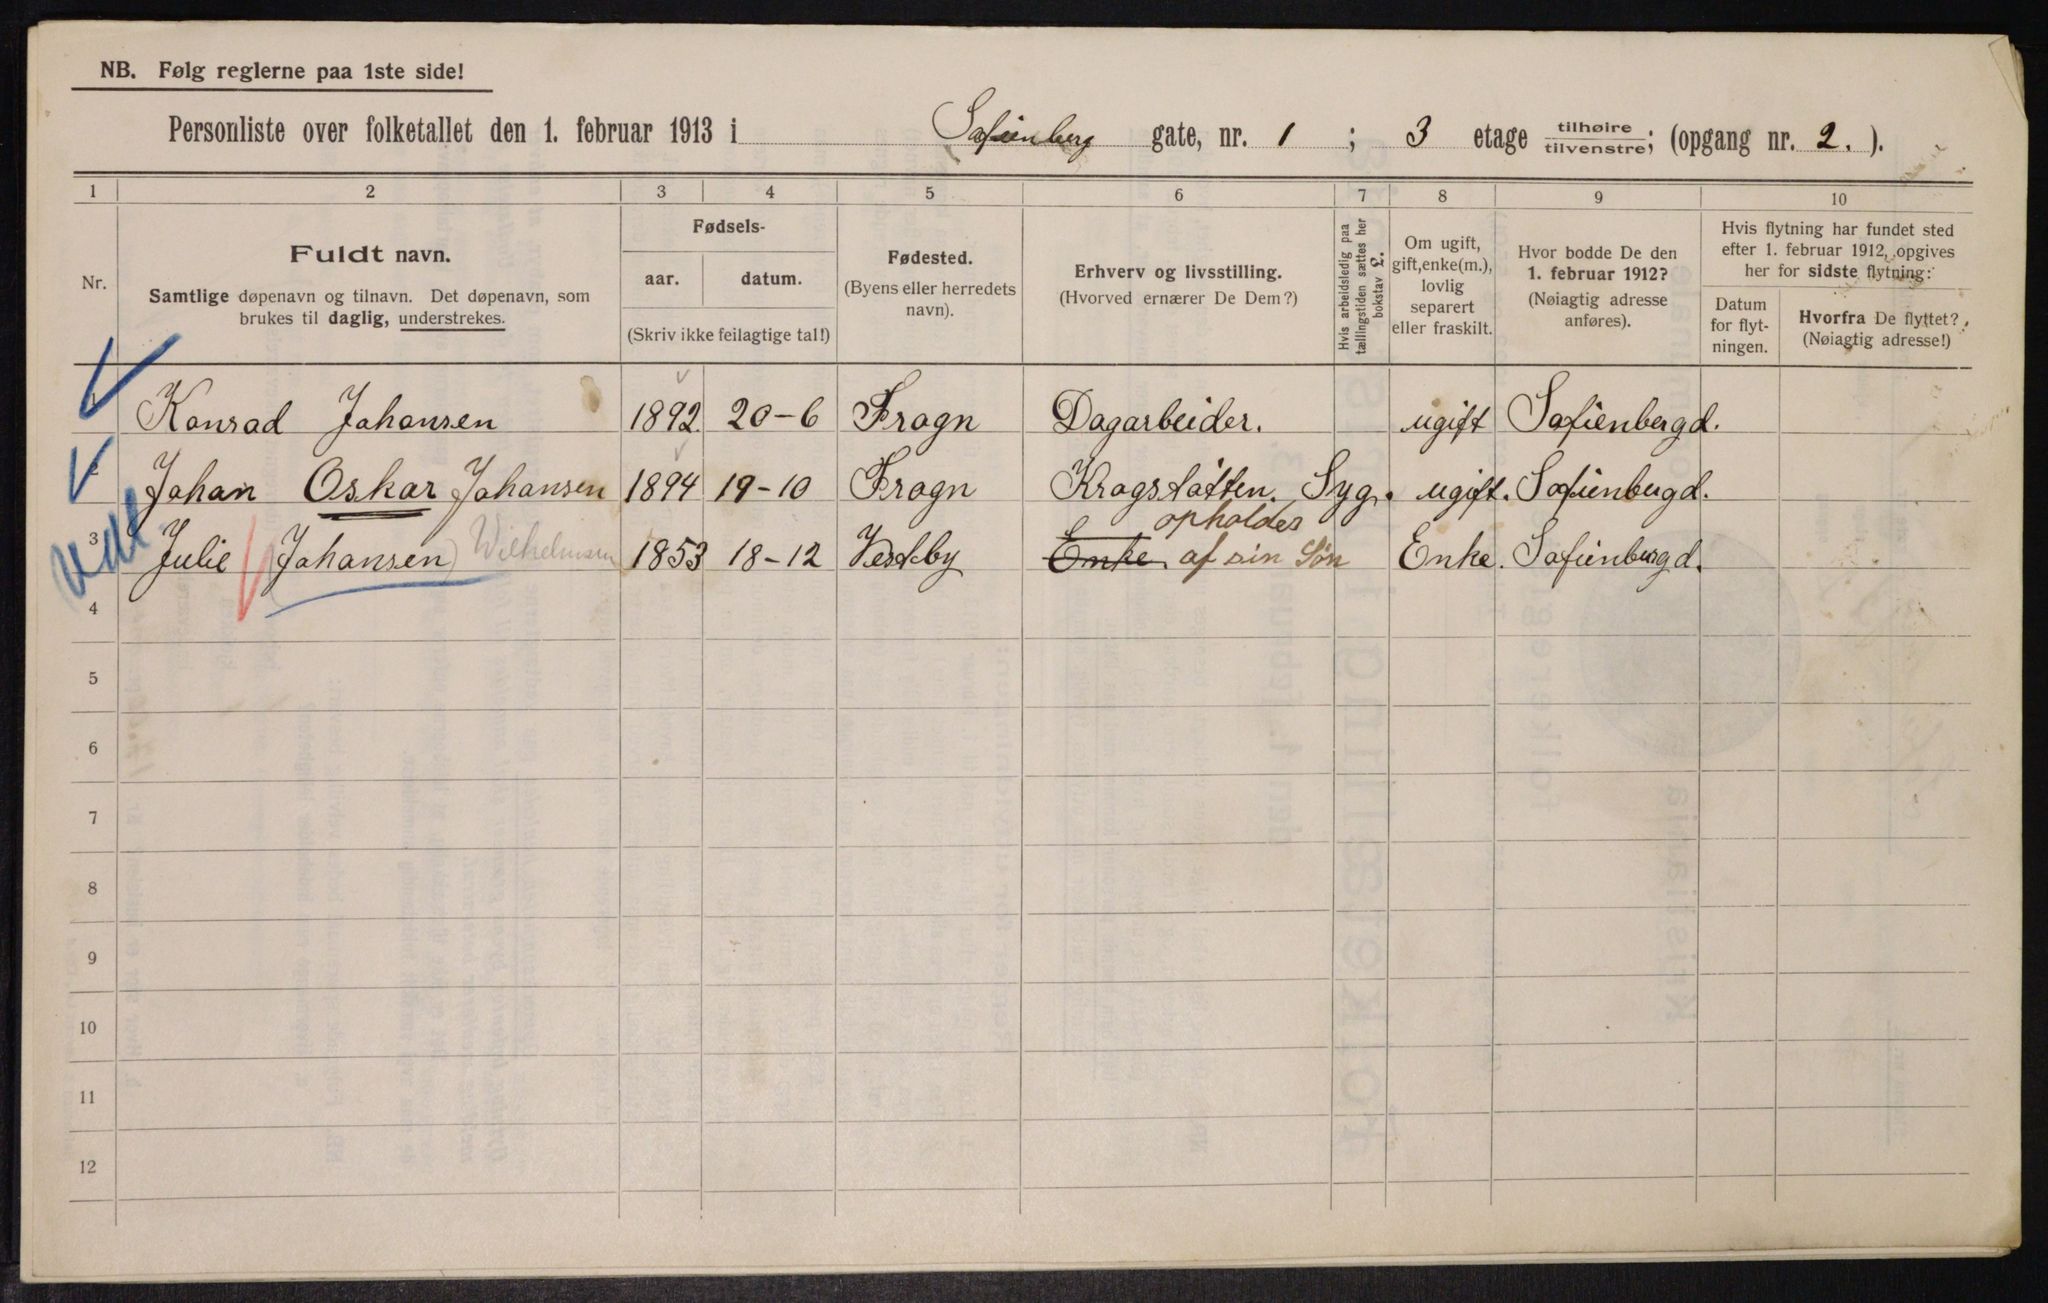 NB. Følg reglerne paa 1ste side!
Personliste over folketallet den 1. februar 1913 i Sofienberg gate, nr. 1 ; 3 etage tilhøire tilvenstre; (opgang nr. 2. ).
1 2 3 4 5 6 7 8 9 10
Nr.
Fuldt navn.
Samtlige døpenavn og tilnavn. Det døpenavn, som
brukes til daglig, understrekes.
Fødsels-
aar. datum.
(Skriv ikke feilagtige tal!)
Fødested.
(Byens eller herredets
navn).
Erhverv og livsstilling.
(Hvorved ernærer De Dem?)
Hvis arbeidsledig paa
tællingstiden sættes her
bokstav L.
Om ugift,
gift, enke(m.),
lovlig
separert
eller fraskilt.
Hvor bodde De den
1. februar 1912?
(Nøiagtig adresse
anføres).
Hvis flytning har fundet sted
efter 1. februar 1912, opgives
her for sidste flytning:
Datum
for flyt-
ningen.
Hvorfra De flyttet?
(Nøiagtig adresse!)
Konrad Johansen 1892 20-6 Frogn Dagarbeider. ugift Sofienbergd.
Johan Oskar Johansen 1894 19-10 Frogn Krogstøtten. Syg. ugift. Sofienbergd.
opholdes
3 Julie Johansen Wilhelmsen 1853 18-12 Vestby Enke af sin Søn Enke. Sofienbergd.
4
5
6
7
8
9
10
11
12